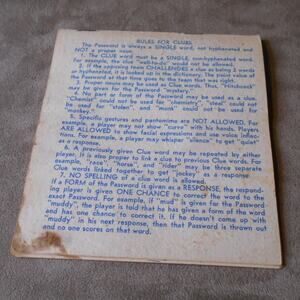 RULES FOR CLUES
The Password is always a SINGLE word, not hyphenated and
NOT a proper noun.
1. The CLUE word must be a SINGLE, non-hyphenated word.
For example, the clue "well-to-do" would not be allowed.
2. If the opposing team CHALLENGES a clue as being 2 words
or hyphenated, it is looked up in the dictionary. The point value of
the Password at that time goes to the team that was right.
3. Proper nouns may be used as Clues. Thus, "Hitchcock"
may be given for the Password "mystery."
4. No part or form of the Password may be used as a clue.
"Chemist" could not be used for "chemistry," "steel" could not
be used for "stolen" and "monk" could not be used for
"monkey."
5. Specific gestures and pantomime are NOT ALLOWED. For
example, a player may not show "wire" with his hands. Players
ARE ALLOWED to show facial expressions and use voice inflec-
tions. For example, a player may whisper "silence" to get "quiet"
as a response.
6. A previously given Clue word may be repeated by either
player. It is also proper to link a clue to previous Clue words. For
example, "race" "horse," and "rider" may be three separate
Clue words linked together to get "jockey" as a response.
7. NO SPELLING of a clue word is allowed.
If a FORM of the Password is given as a RESPONSE, the respond-
ing player is given ONE CHANCE to correct the word to the
exact Password. For example, if "mud" is given for the Password
"muddy", the player is told that he has given a form of the word
and has one chance to correct it. If he doesn't come up with
"muddy" in his next response, then that Password is thrown out
and no one scores on that word.